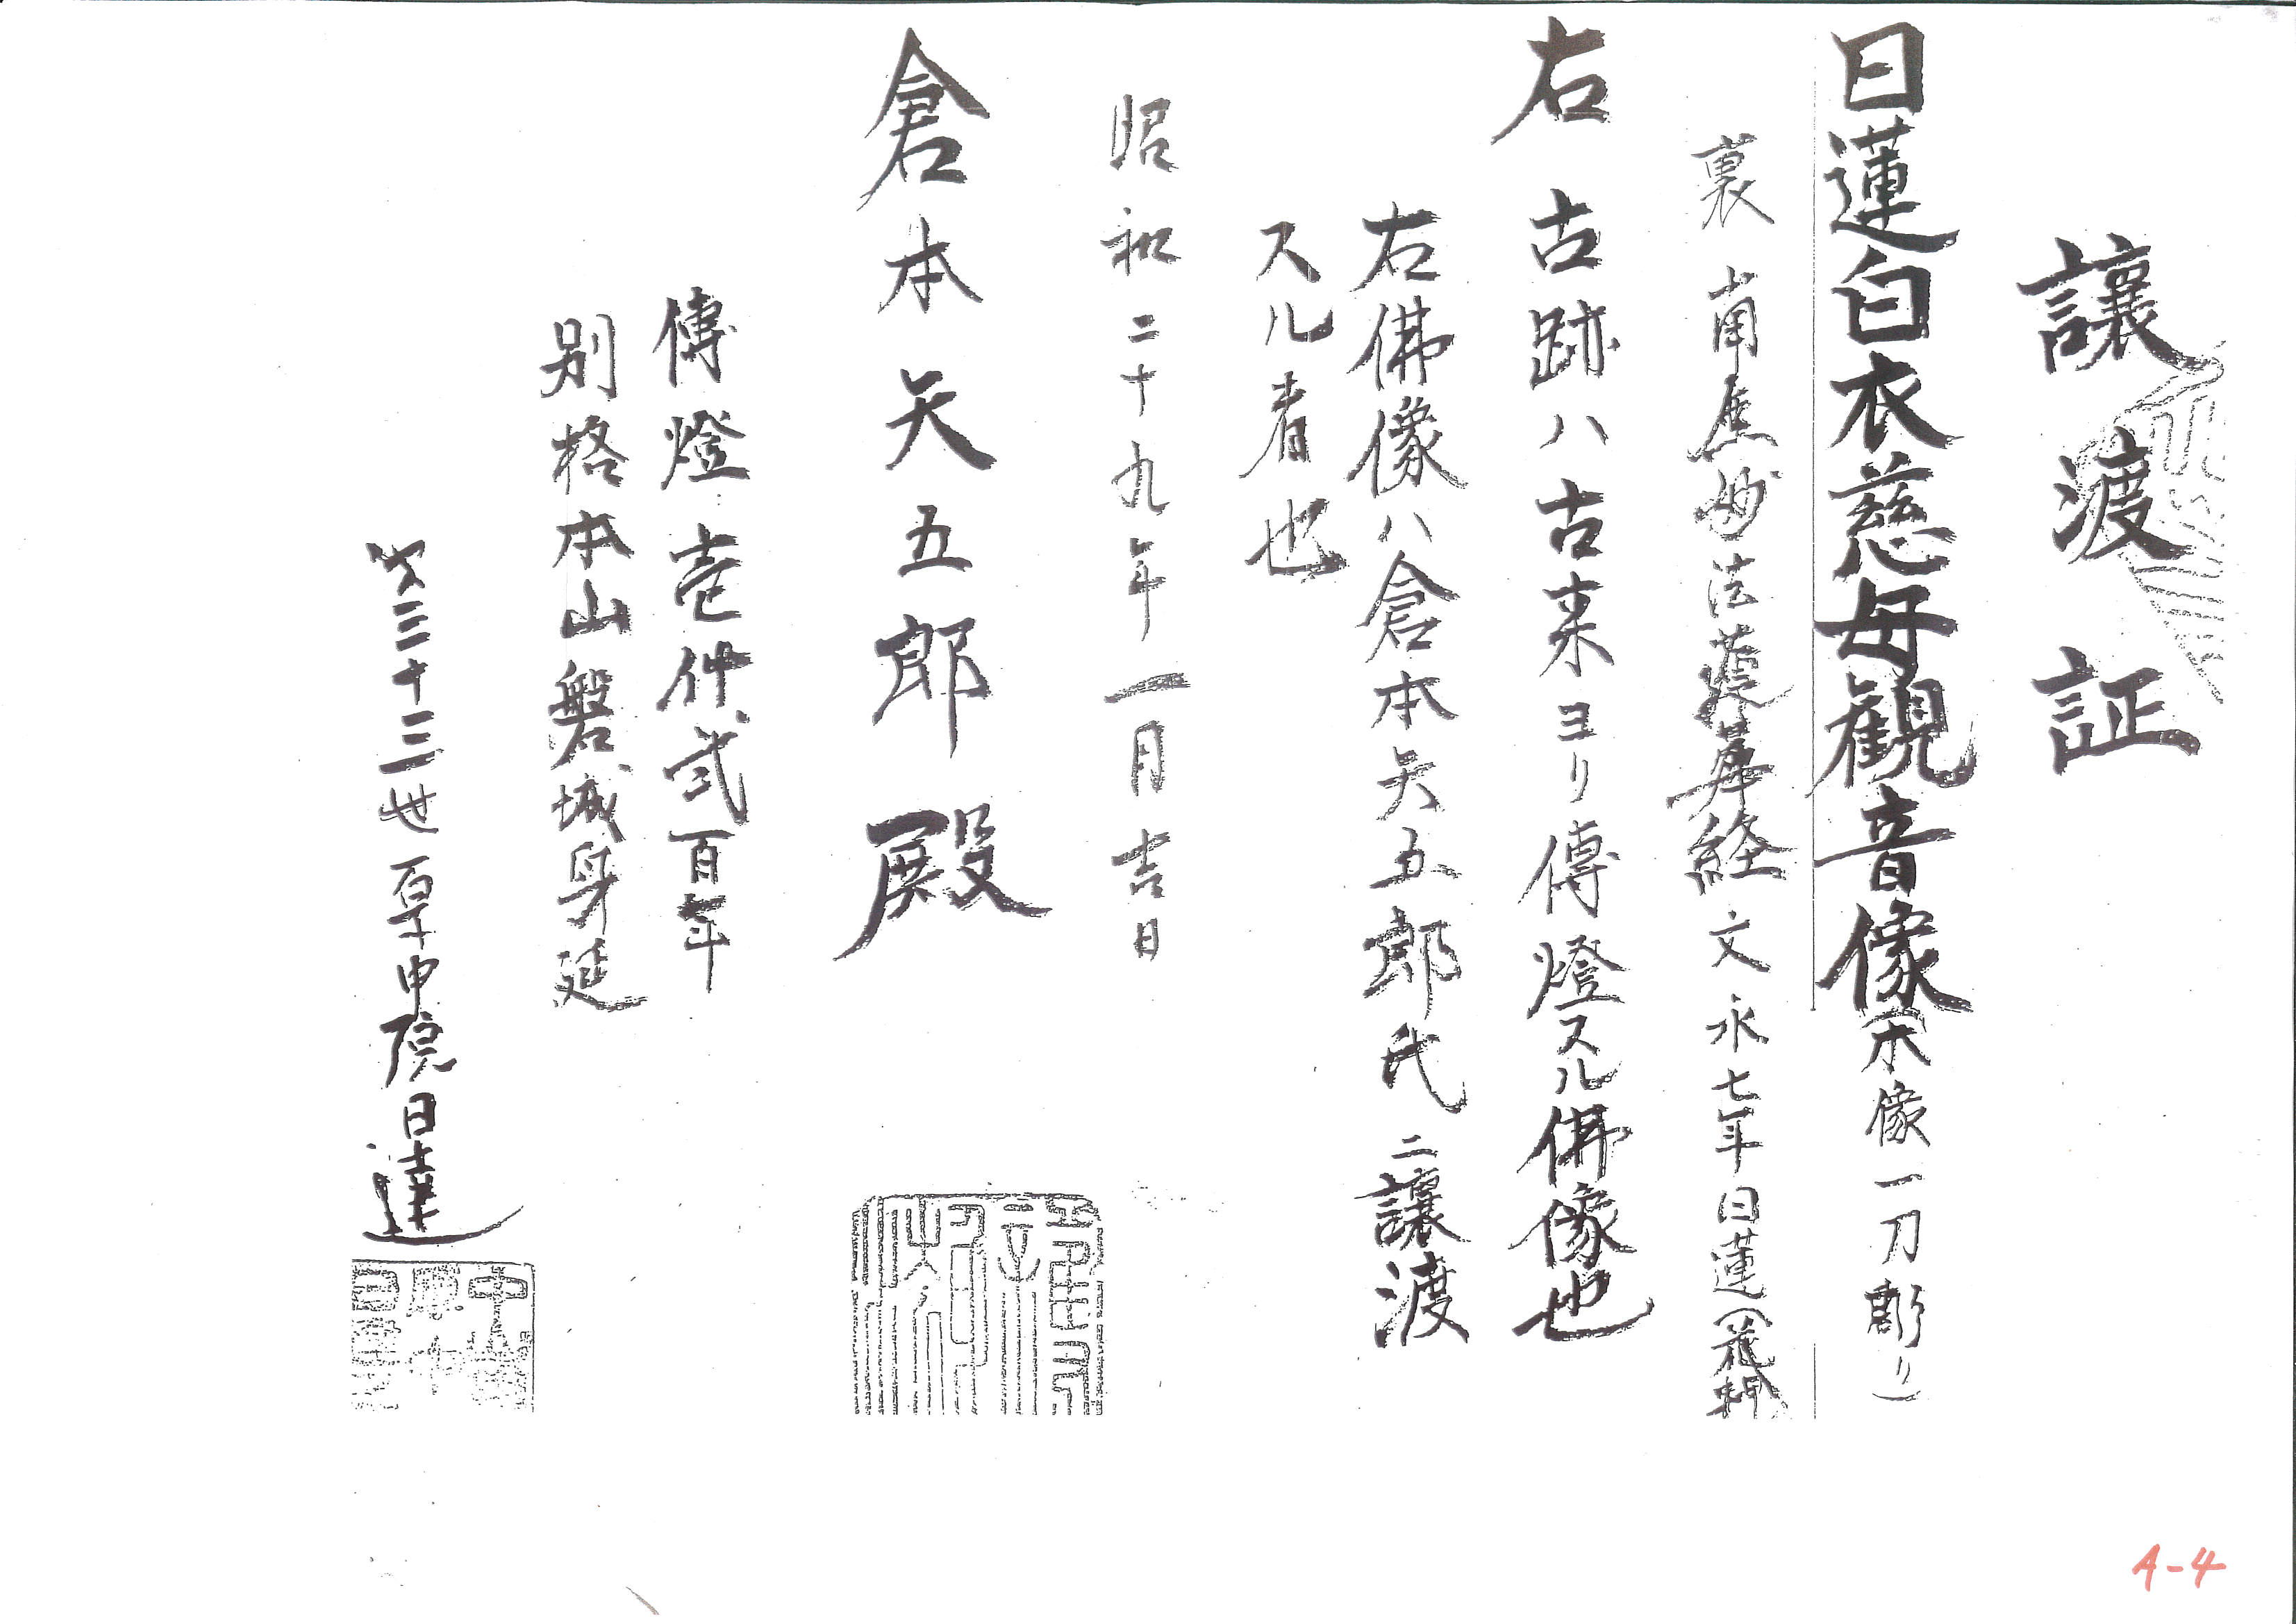 讓渡証
日蓮白衣慈母観音像(木像一刀彫リ)
裏 南無妙法蓮華経 文永七年日蓮(花押
右 古跡ハ古来ヨリ傳燈スル佛像也
右佛像ハ倉本矢五郎氏ニ讓渡
スル者也
昭和二十九年一月吉日
倉本矢五郎殿
傳燈壱仟弐百年
別格本山磐城身延
三十三世 中院日達
A-4